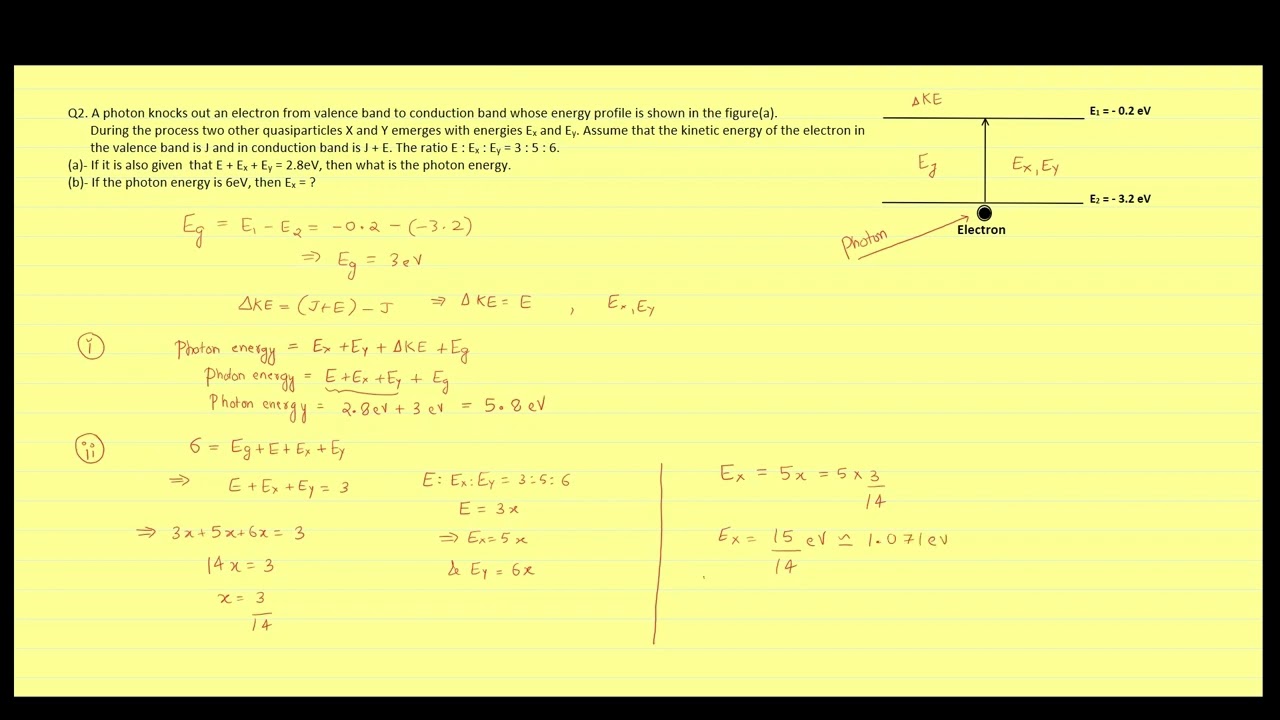 Q2. A photon knocks out an electron from valence band to conduction band whose energy profile is shown in the figure(a).
During the process two other quasiparticles X and Y emerges with energies Ex and Ey. Assume that the kinetic energy of the electron in
the valence band is J and in conduction band is J + E. The ratio E : Ex : Ey = 3 : 5 : 6.
(a)- If it is also given that E + Ex + Ey = 2.8eV, then what is the photon energy.
(b)- If the photon energy is 6eV, then Ex = ?
ΔKE
E1 = - 0.2 eV
Eg
Ex, Ey
E2 = - 3.2 eV
Photon
Electron
Eg = E1 - E2 = -0.2 - (-3.2)
⇒ Eg = 3eV
ΔKE = (J+E) - J ⇒ ΔKE = E , Ex, Ey
i
Photon energy = Ex + Ey + ΔKE + Eg
Photon energy = E + Ex + Ey + Eg
Photon energy = 2.8 eV + 3 eV = 5.8 eV
ii
6 = Eg + E + Ex + Ey
⇒ E + Ex + Ey = 3
⇒ 3x + 5x + 6x = 3
14x = 3
x = 3/14
E : Ex : Ey = 3 : 5 : 6
E = 3x
⇒ Ex = 5x
& Ey = 6x
Ex = 5x = 5 × 3/14
Ex = 15/14 eV ≃ 1.071 eV